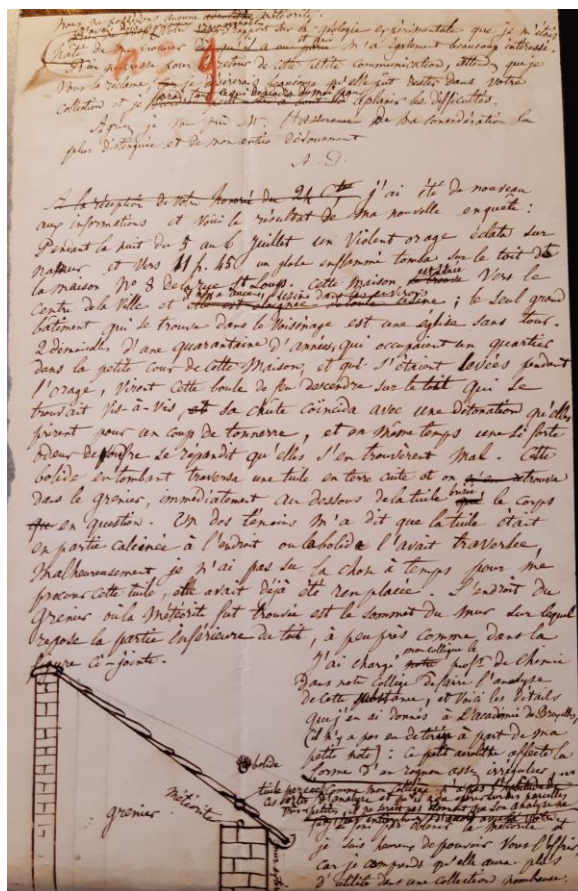 nous ne possédons aucune météorite.
votre rapport sur la géologie expérimentale que je m'étais
hâté de me procurer et qui m'a également beaucoup intéressé.
pour le retour de cette petite communication, attendu que je
vous la réclame, je désirerais beaucoup qu'elle put rester dans votre
collection et je ferai tout ce qui dépendra de moi pour aplanir les difficultés.
Agréez je vous prie Mr. l'assurance de ma considération la
plus distinguée et de mon entier dévouement
A. D.
A la réception de votre honorée du 24 j'ai été de nouveau
aux informations et voici le résultat de ma nouvelle enquête :
Pendant la nuit du 5 au 6 juillet un violent orage éclata sur
Namur et vers 11 h. 45 un globe enflammé tomba sur le toit de
la maison No 8 de la rue St Loup. Cette maison est située vers le
centre de la ville et il n'y a aucune usine dans les environs ; le seul grand
bâtiment qui se trouve dans le voisinage est une église sans tour.
2 demoiselles d'une quarantaine d'années, qui occupaient un quartier
dans la petite cour de cette maison, et qui s'étaient levées pendant
l'orage, virent cette boule de feu descendre sur le toit qui se
trouvait vis-à-vis, sa chute coïncida avec une détonation qu'elles
prirent pour un coup de tonnerre, et en même temps une si forte
odeur de soufre se répandit qu'elles s'en trouvèrent mal. Cette
bolide en tombant traversa une tuile en terre cuite et on trouva
dans le grenier, immédiatement au dessous de la tuile brisée le corps
en question. Un des témoins m'a dit que la tuile était
en partie calcinée à l'endroit où le bolide l'avait traversée,
malheureusement je n'ai pas su la chose à temps pour me
procurer cette tuile, elle avait déjà été remplacée. L'endroit du
grenier où la météorite fut trouvée est le sommet du mur sur lequel
repose la partie inférieure du toit, à peu près comme dans la
figure ci-jointe.
J'ai chargé mon collègue le profr. de chimie
dans notre collège de faire l'analyse
de cette substance, et voici les détails
que j'en ai donnés à l'académie de Bruxelles
(il n'y a pas eu de tirée à part de ma
petite note) : ce petit aérolithe affecte la
forme d'un rognon assez irrégulier
bolide
tuile percée
météorite
grenier
Comme mon collègue n'a pas l'habitude de
ces sortes d'analyse et qu'il a pu opérer sur des parcelles
la météorite
je suis heureux de pouvoir vous l'offrir
car je comprends qu'elle aura plus
d'utilité dans une collection nombreuse.